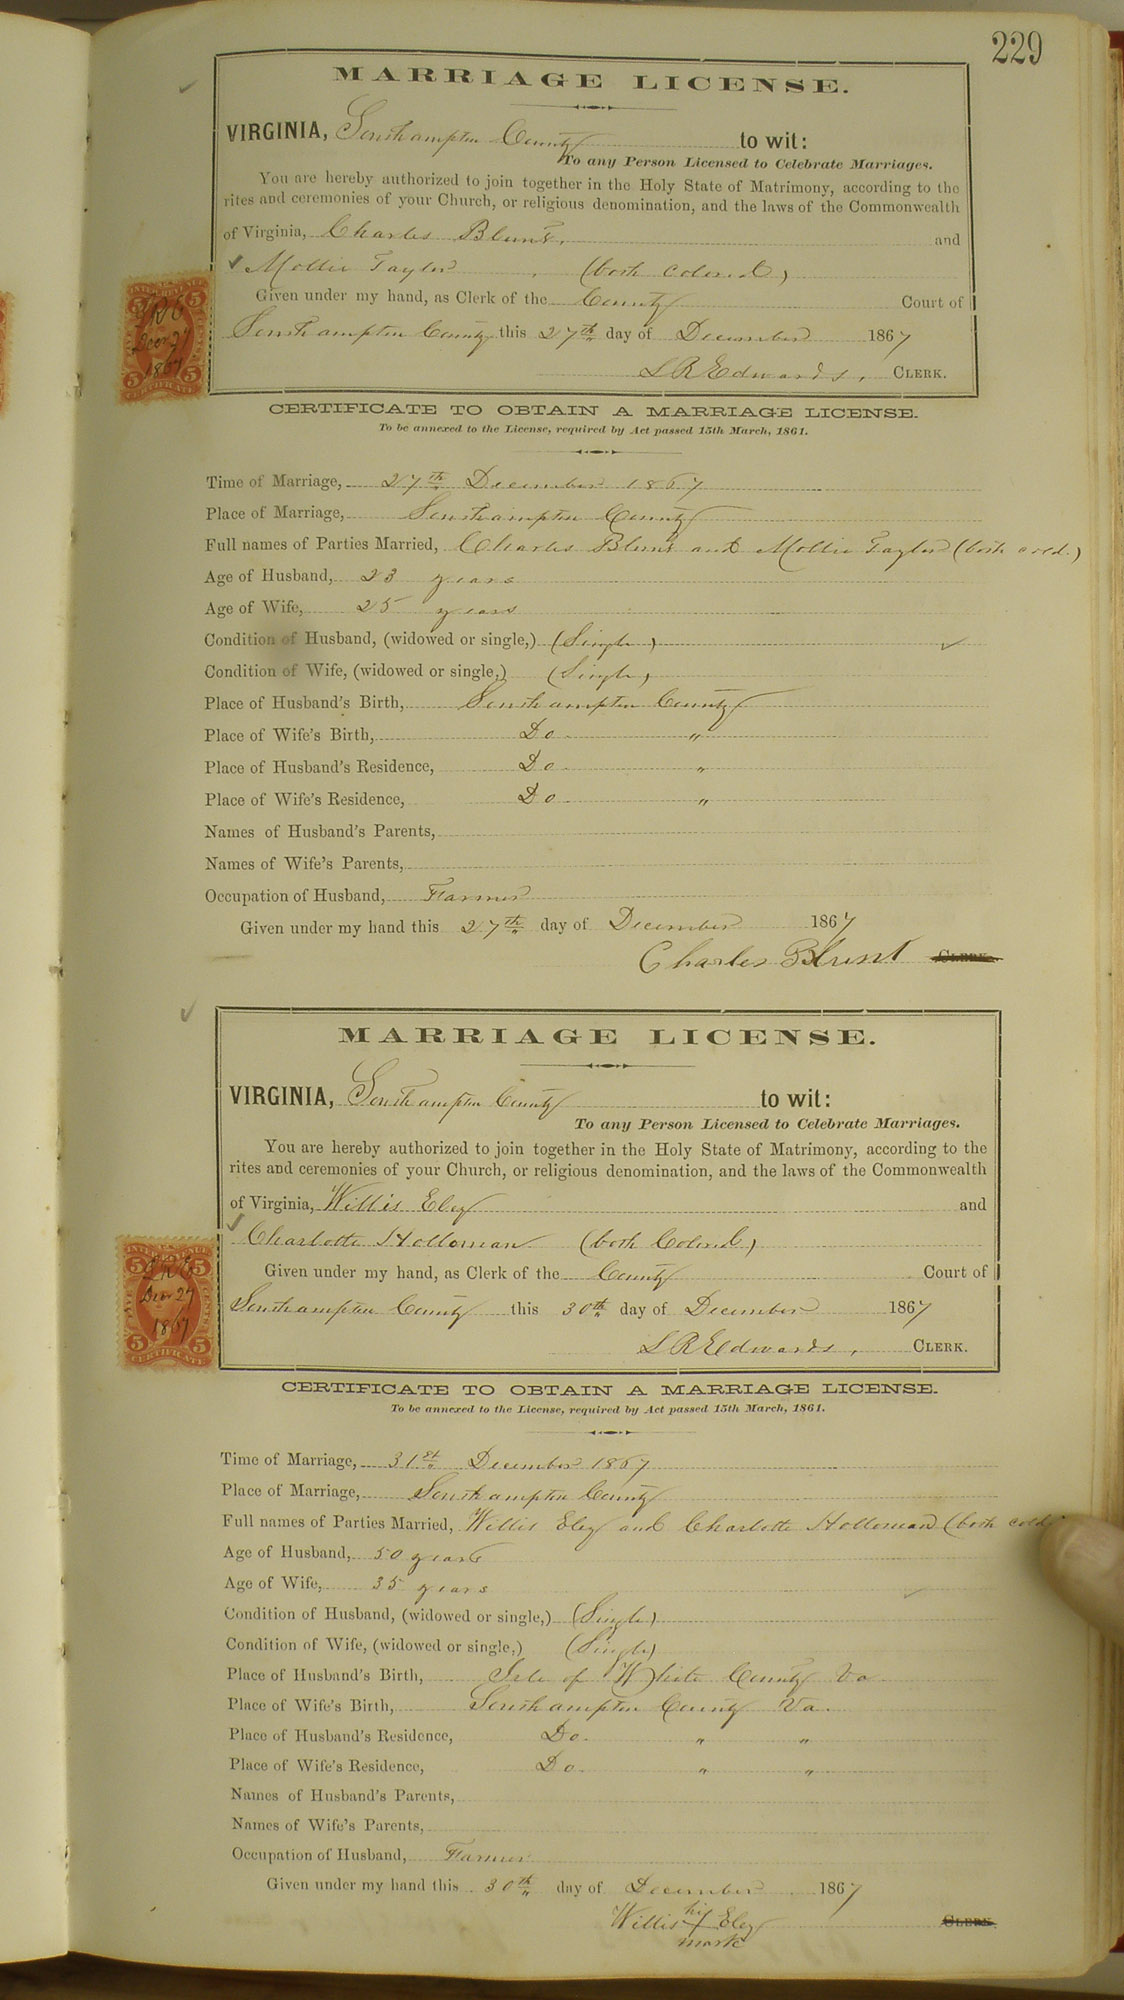 229
MARRIAGE LICENSE.
VIRGINIA, Southampton County to wit:
To any Person Licensed to Celebrate Marriages.
You are hereby authorized to join together in the Holy State of Matrimony, according to the
rites and ceremonies of your Church, or religious denomination, and the laws of the Commonwealth
of Virginia, Charles Blunt, and
Mollie Taylor (both colored)
Given under my hand, as Clerk of the County Court of
Southampton County this 27th day of December 1867
L R Edwards, CLERK.
LRE
Decr 27
1867
CERTIFICATE TO OBTAIN A MARRIAGE LICENSE.
To be annexed to the License, required by Act passed 15th March, 1861.
Time of Marriage, 27th December 1867
Place of Marriage, Southampton County
Full names of Parties Married, Charles Blunt and Mollie Taylor (both cold.)
Age of Husband, 23 years
Age of Wife, 25 years
Condition of Husband, (widowed or single,) (Single)
Condition of Wife, (widowed or single,) (Single)
Place of Husband's Birth, Southampton County
Place of Wife's Birth, Do "
Place of Husband's Residence, Do "
Place of Wife's Residence, Do "
Names of Husband's Parents,
Names of Wife's Parents,
Occupation of Husband, Farmer
Given under my hand this 27th day of December 1867
Charles Blunt CLERK.
MARRIAGE LICENSE.
VIRGINIA, Southampton County to wit:
To any Person Licensed to Celebrate Marriages.
You are hereby authorized to join together in the Holy State of Matrimony, according to the
rites and ceremonies of your Church, or religious denomination, and the laws of the Commonwealth
of Virginia, Willis Eley and
Charlotte Holloman (both Colored)
Given under my hand, as Clerk of the County Court of
Southampton County this 30th day of December 1867
L R Edwards, CLERK.
INTER. REVENUE
LRE
Decr 27
1867
5 5
CERTIFICATE
CERTIFICATE TO OBTAIN A MARRIAGE LICENSE.
To be annexed to the License, required by Act passed 15th March, 1861.
Time of Marriage, 31st December 1867
Place of Marriage, Southampton County
Full names of Parties Married, Willis Eley and Charlotte Holloman (both cold
Age of Husband, 50 years
Age of Wife, 35 years
Condition of Husband, (widowed or single,) (Single)
Condition of Wife, (widowed or single,) (Single)
Place of Husband's Birth, Isle of White County Va
Place of Wife's Birth, Southampton County Va.
Place of Husband's Residence, Do. " "
Place of Wife's Residence, Do. " "
Names of Husband's Parents,
Names of Wife's Parents,
Occupation of Husband, Farmer
Given under my hand this 30th day of December 1867
Willis his X Eley CLERK.
mark